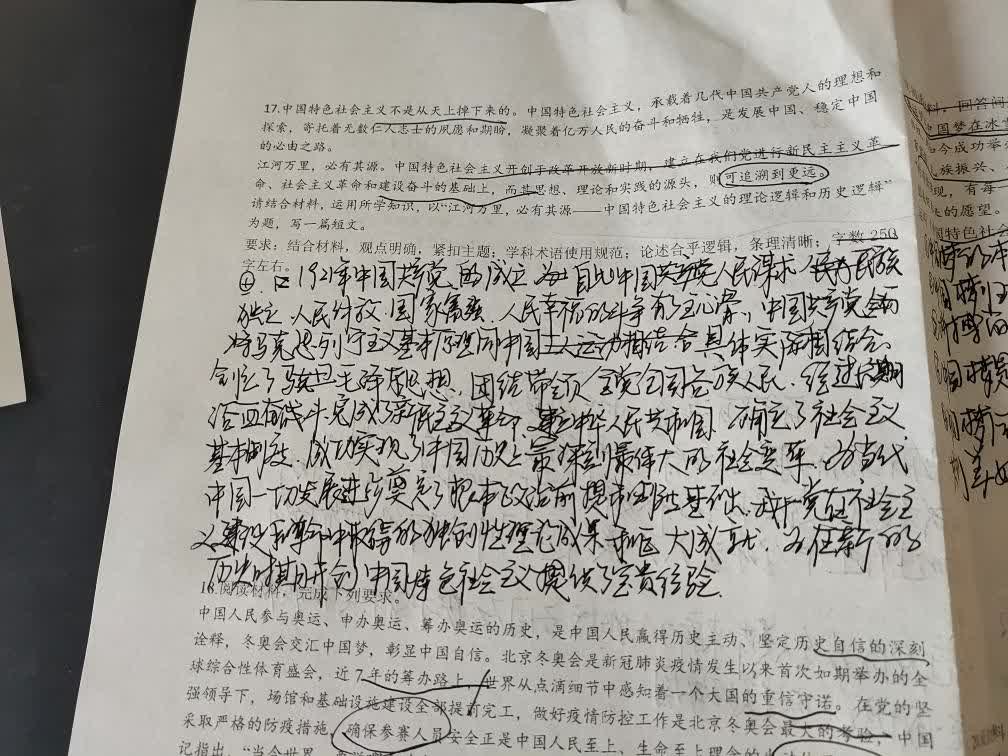 17.中国特色社会主义不是从天上掉下来的。中国特色社会主义，承载着几代中国共产党人的理想和
探索，寄托着无数仁人志士的夙愿和期盼，凝聚着亿万人民的奋斗和牺牲，是发展中国、稳定中国
的必由之路。
江河万里，必有其源。中国特色社会主义开创于改革开放新时期，建立在我们党进行新民主主义革
命、社会主义革命和建设奋斗的基础上，而其思想、理论和实践的源头，则可追溯到更远。
请结合材料，运用所学知识，以“江河万里，必有其源——中国特色社会主义的理论逻辑和历史逻辑”
为题，写一篇短文。
要求：结合材料，观点明确，紧扣主题；学科术语使用规范；论述合乎逻辑，条理清晰；字数 250
字左右。
1921年中国共产党的成立 自此中国共产党人民谋求 民族
独立、人民解放、国家富强、人民幸福的斗争有了主心骨，中国共产党
将马克思列宁主义基本原理同中国 具体实际相结合，
创立了 毛泽东思想，团结带领全党全国各族人民，经过长期
浴血奋战斗完成了新民主主义革命，建立中华人民共和国，确定了社会主义
基本制度，成功实现了中国历史上最深刻最伟大的社会变革，为当代
中国一切发展进步奠定了根本政治前提和制度基础。 党在社会主
义建设 中取得的独创性理论成果和巨大成就，为在新的
历史时期开创中国特色社会主义提供了宝贵经验。
18.阅读材料，完成下列要求。
中国人民参与奥运、申办奥运、筹办奥运的历史，是中国人民赢得历史主动、坚定历史自信的深刻
诠释，冬奥会交汇中国梦，彰显中国自信。北京冬奥会是新冠肺炎疫情发生以来首次如期举办的全
球综合性体育盛会，近7年的筹办路上，世界从点滴细节中感知着一个大国的重信守诺。在党的坚
强领导下，场馆和基础设施建设全部提前完工，做好疫情防控工作是北京冬奥会最大的考验，中国
采取严格的防疫措施，确保参赛人员安全正是中国人民至上、生命至上理念的
记指出，“当今世界，
回答问
中国梦在冰
如今成功举办
族振兴、
现，有每一
的愿望。
国特色社会